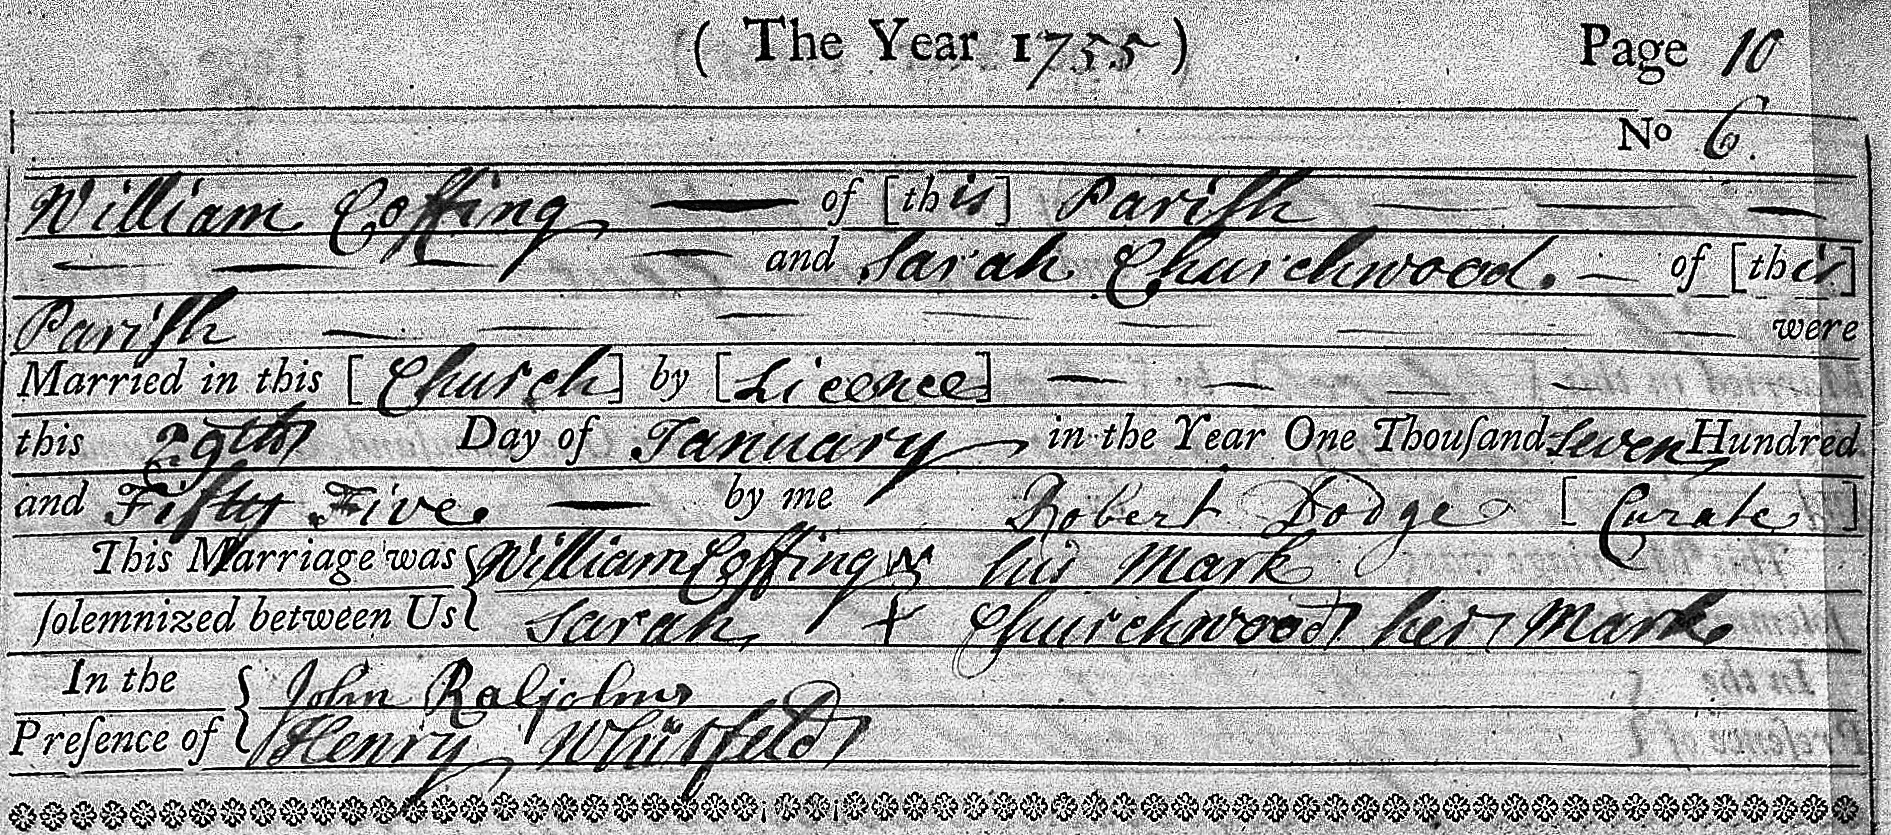 ( The Year 1755 ) Page 10
No 6.
William Coffing of [this] Pariſh
and Sarah Churchwood. of [this]
Pariſh were
Married in this [Church] by [Licence]
this 29th Day of January in the Year One Thouſand Seven Hundred
and Fifty Five by me Robert Dodge [Curate]
This Marriage was { William Coffing his Mark
ſolemnized between Us { Sarah + Churchwood her Mark
In the { John Raljohns
Preſence of { Henry